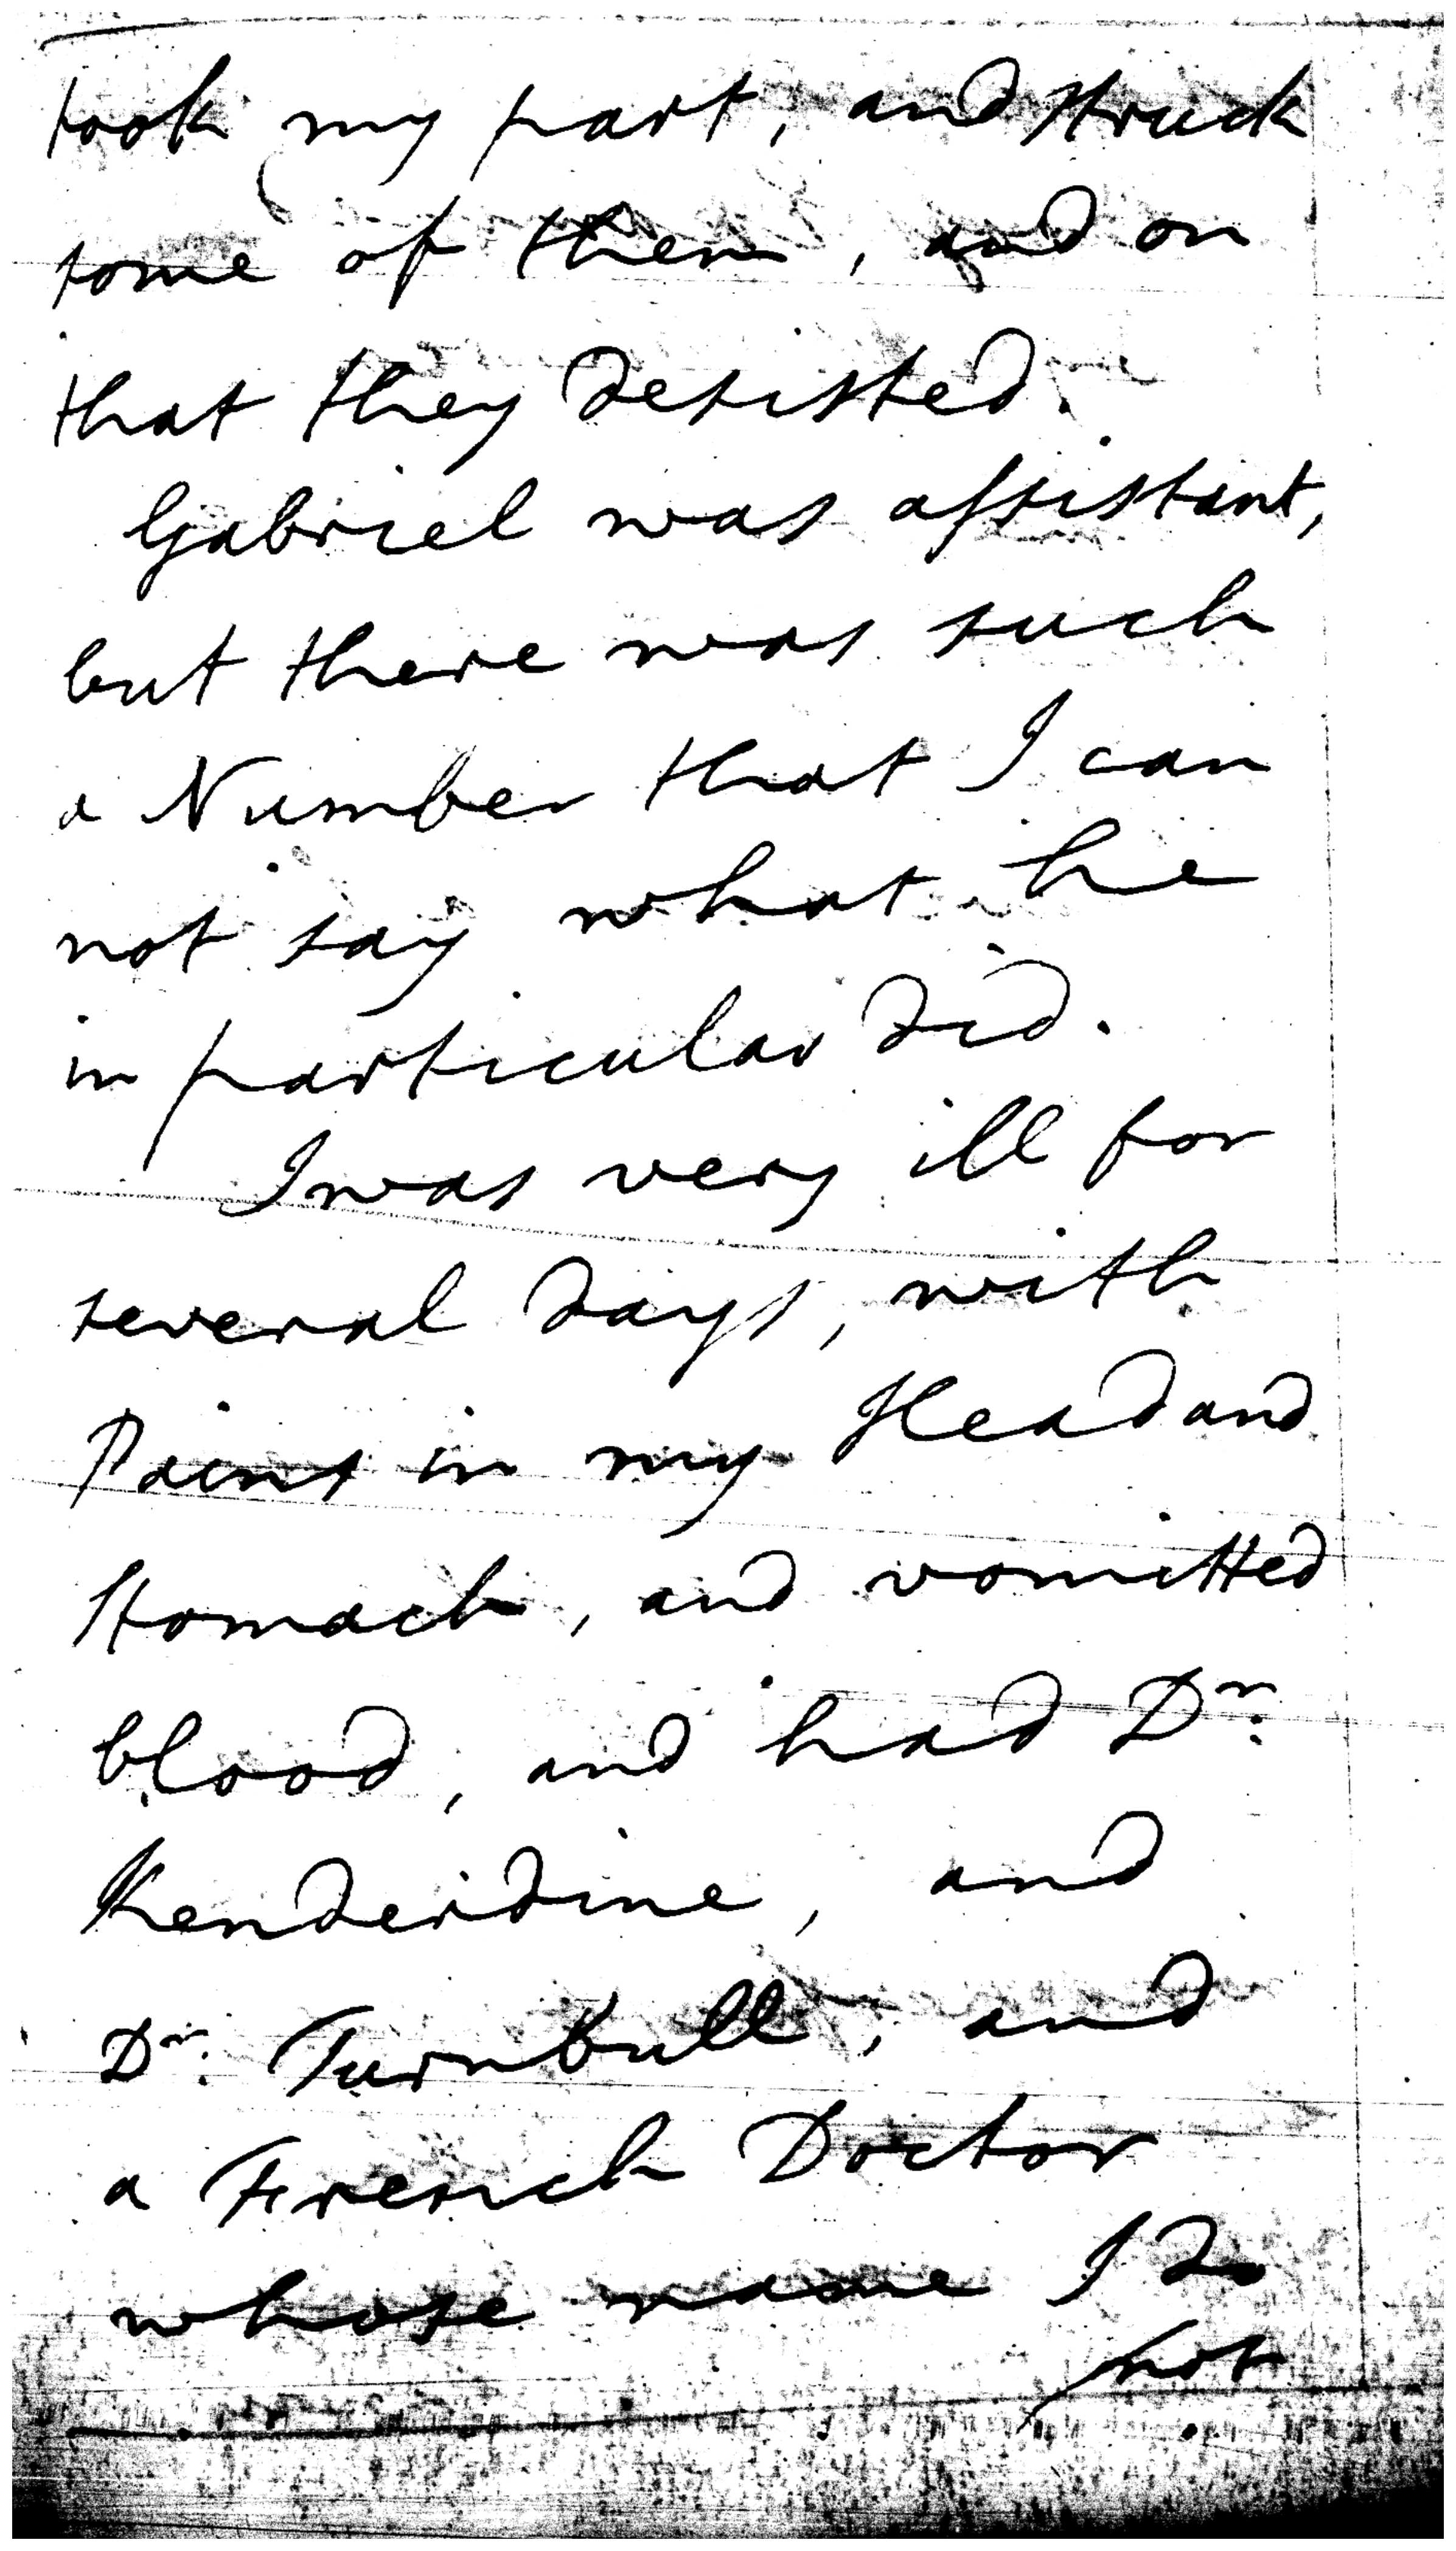 took my part, and struck
some of them, and on
that they desisted.
Gabriel was assistant,
but there was such
a Number that I can
not say what he
in particular did.
I was very ill for
several days, with
Pains in my Head and
Stomach, and vomitted
blood, and had Dr.
Kenderdine, and
Dr. Turnbull, and
a French Doctor
whose name I do
not